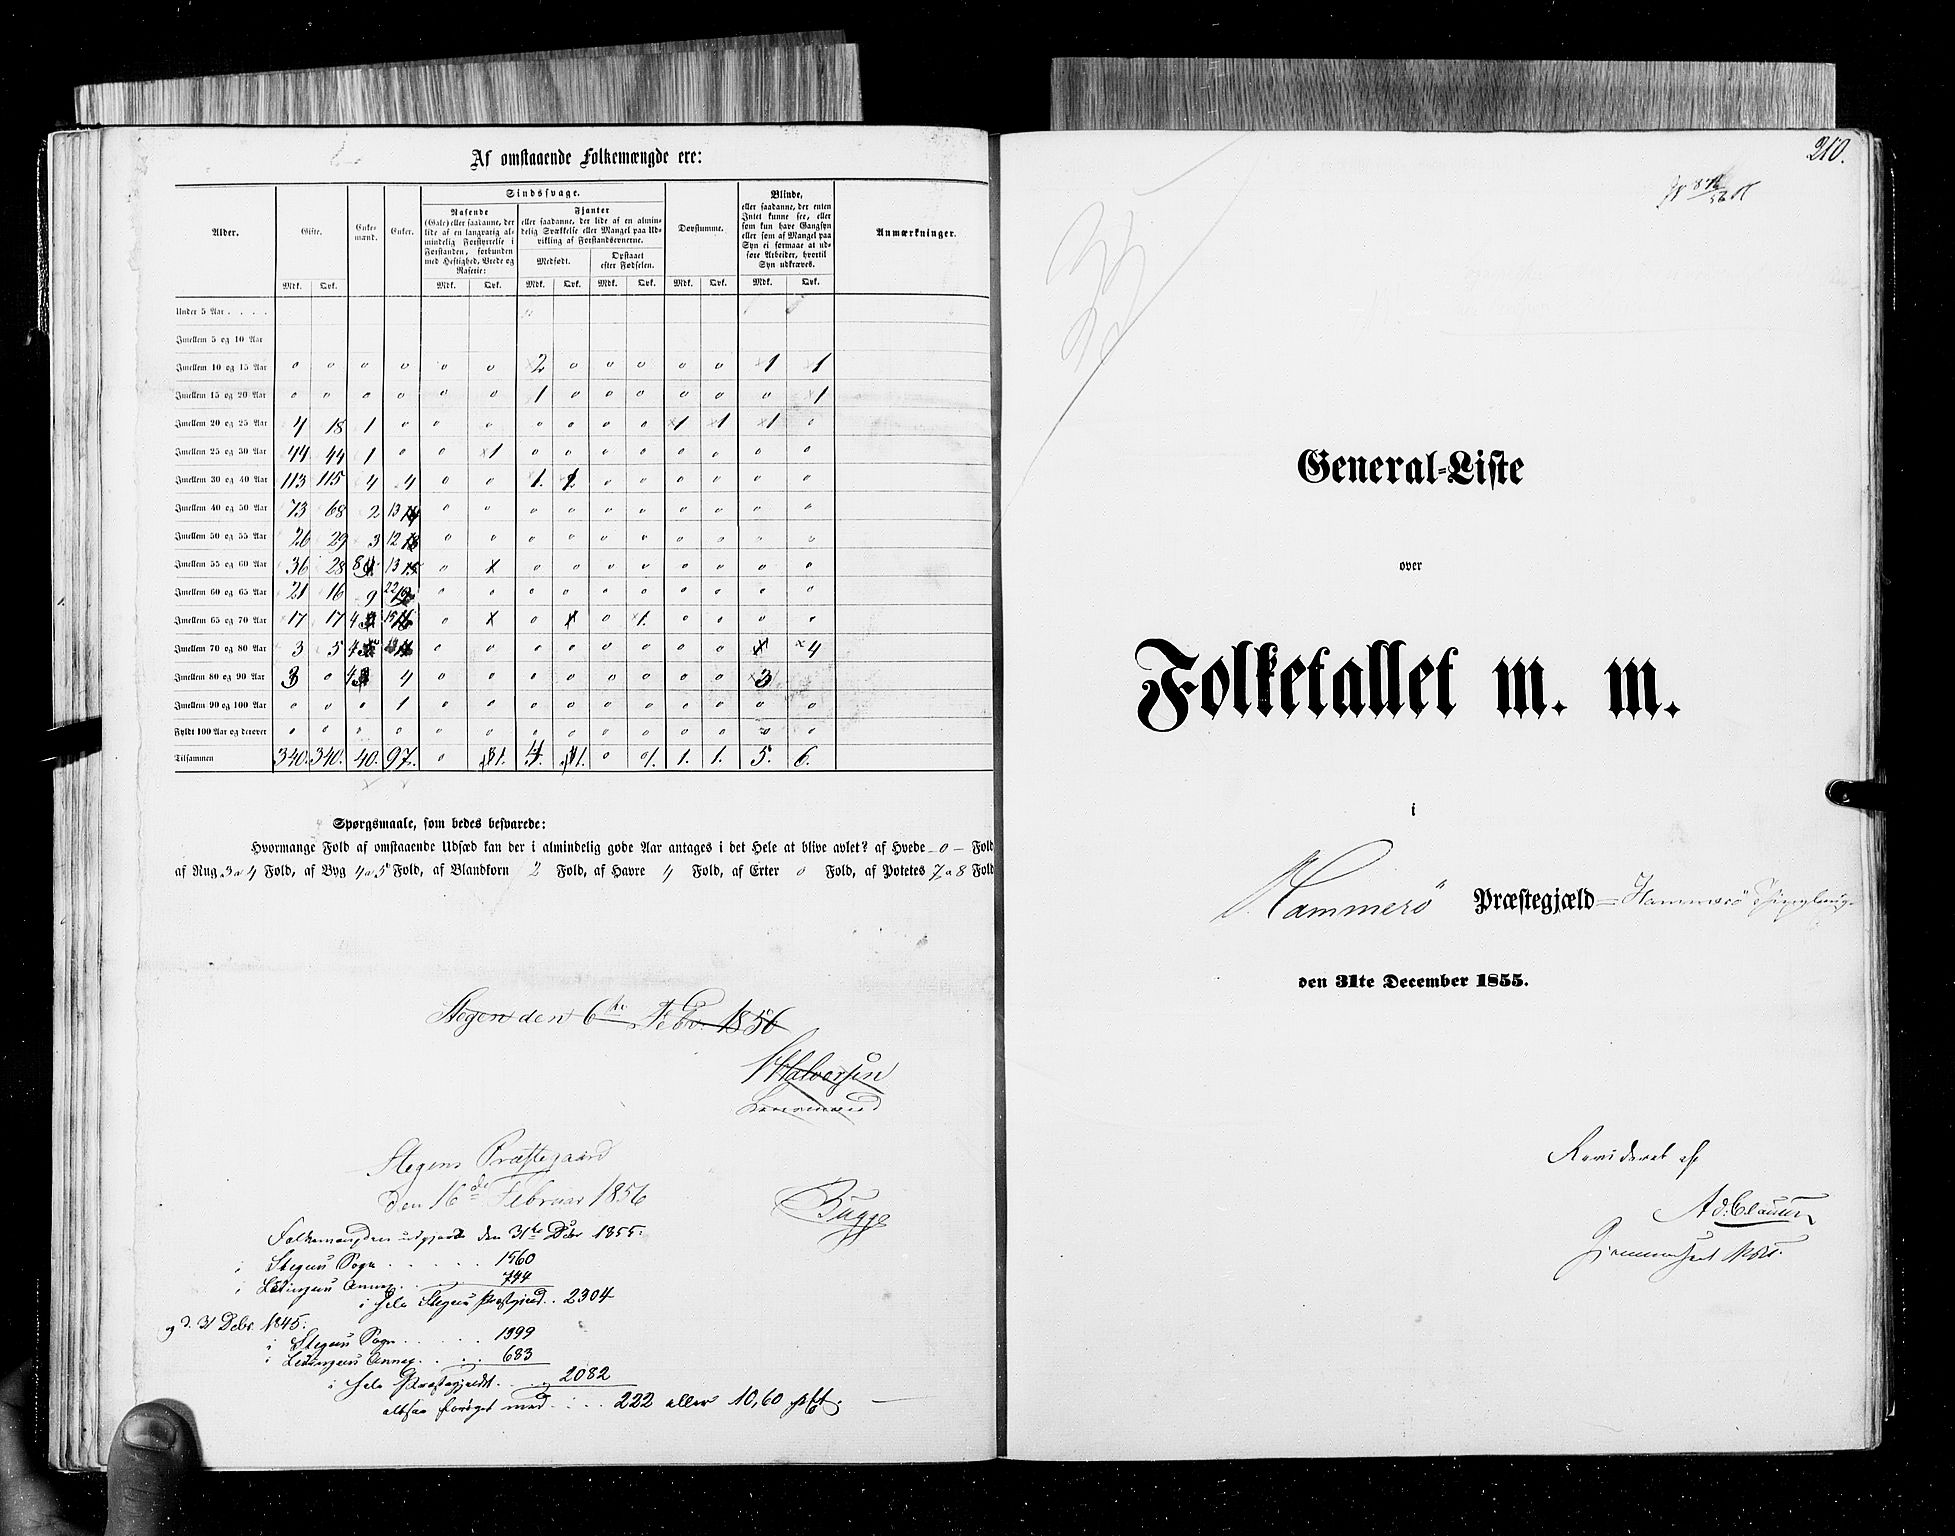 Af omstaaende Folkemængde ere:
Alder. Gifte. Enkemænd. Enker. Sindssvage. Døvstumme. Blinde, Anmærkninger.
Rasende (Gale) eller saadanne, der lide af en langvarig almindelig Forstyrrelse i Forstanden, forbunden med Heftighed, Vrede og Raseri:
Fjanter eller saadanne, der lide af en almindelig Svækkelse eller Mangel paa Udvikling af Forstandsevnerne.
Medfødt. Opstaaet efter Fødselen.
eller saadanne, der enten Intet kunne see, eller som kun have Gangsyn eller som af Mangel paa Syn ei formaae at udføre Arbeider, hvortil Syn udkræves.
Mdk. Qvk. Mdk. Qvk. Mdk. Qvk. Mdk. Qvk. Mdk. Qvk. Mdk. Qvk.
Under 5 Aar . . . .
Imellem 5 og 10 Aar
Imellem 10 og 15 Aar 0 0 0 0 0 0 2 0 0 0 0 0 1 1
Imellem 15 og 20 Aar 0 0 0 0 0 0 1 0 0 0 0 0 0 1
Imellem 20 og 25 Aar 4 18 1 0 0 0 0 0 0 0 1 1 1 0
Imellem 25 og 30 Aar 44 44 1 0 0 1 0 0 0 0 0 0 0 0
Imellem 30 og 40 Aar 113 115 4 4 0 0 1 0 0 0 0 0 0
Imellem 40 og 50 Aar 73 68 2 13 0 0 0 0 0 0 0 0 0 0
Imellem 50 og 55 Aar 26 29 3 12 0 0 0 0 0 0 0 0 0 0
Imellem 55 og 60 Aar 36 28 8 13 0 0 0 0 0 0 0 0 0
Imellem 60 og 65 Aar 21 16 9 22 0 0 0 0 0 0 0 0 0 0
Imellem 65 og 70 Aar 17 17 4 15 0 0 0 1 0 0 0 0
Imellem 70 og 80 Aar 3 5 4 0 0 0 0 0 0 0 0 4
Imellem 80 og 90 Aar 3 0 4 4 0 0 0 0 0 0 0 0 3
Imellem 90 og 100 Aar 0 0 0 1 0 0 0 0 0 0 0 0 0 0
Fyldt 100 Aar og derover 0 0 0 0 0 0 0 0 0 0 0 0 0 0
Tilsammen 340. 340. 40. 97. 0 1. 4. 1. 0 1. 1. 1. 5. 6.
Spørgsmaale, som bedes besvarede:
Hvormange Fold af omstaaende Udsæd kan der i almindelig gode Aar antages i det Hele at blive avlet? af Hvede - 0 - Fold
af Rug 3 a 4 Fold, af Byg 4 a 5 Fold, af Blandkorn 2 Fold, af Havre 4 Fold, af Erter 0 Fold, af Potetes 7 a 8 Fold
Stegen den 6te Febr. 1856
Halvorsen
Lensmand
Stegens Præstegaard
den 16de Februar 1856
Bugge
Folkemængden udgjorde den 31te Debr 1855:
i Stegens Sogn . . . . . . 1560
i Ledingens Annex . . . . 744
i hele Stegens Præstegjeld . . 2304
og d. 31 Debr. 1845:
i Stegens Sogn . . . . . 1399
i Ledingens Annex . . . . 683
i hele Præstegjeldet . . . . 2082
altsaa forøget med . . . . 222 eller 10,60 pCt.
210.
General-Liste
over
Folketallet m. m.
i
Hammerö Præstegjæld = Hammerö Thinglaug.
den 31te December 1855.
Revideret af
Ad. Clausen